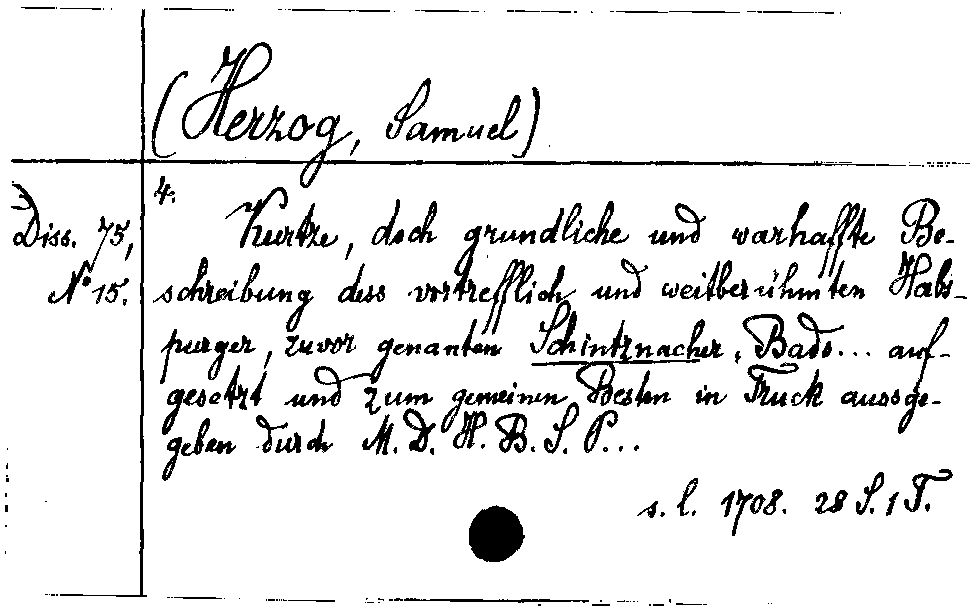 (Herzog, Samuel)
Diss. 75,
No 15.
4.
Kurtze, doch grundliche und warhaffte Be-
schreibung dess vortrefflich und weitberühmten Habs-
purger, zuvor genanten Schintznacher, Bads... auf-
gesetzt und zum gemeinen Besten in Truck aussge-
geben durch M. D. H. B. S. P...
s. l. 1708. 28 S. 1 T.